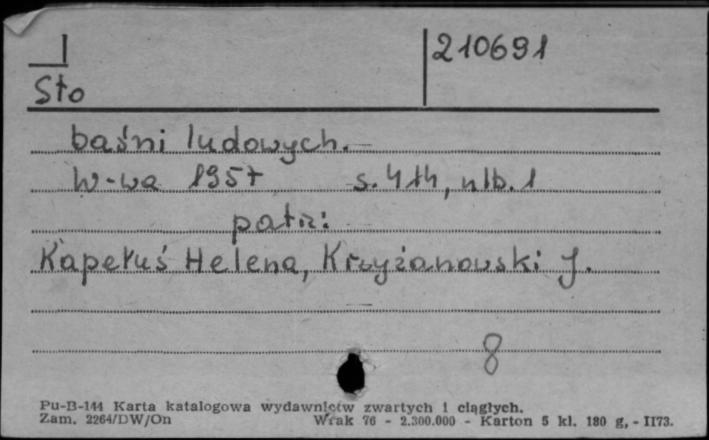 I 210691
Sto
baśni ludowych.
W-wa 1957 s. 414, nlb. 1
patrz:
Kapełuś Helena, Krzyżanowski J.
8
Pu-B-144 Karta katalogowa wydawnictw zwartych i ciągłych.
Zam. 2264/DW/On Wrak 76 - 2.300.000 - Karton 5 kl. 180 g, - II73.